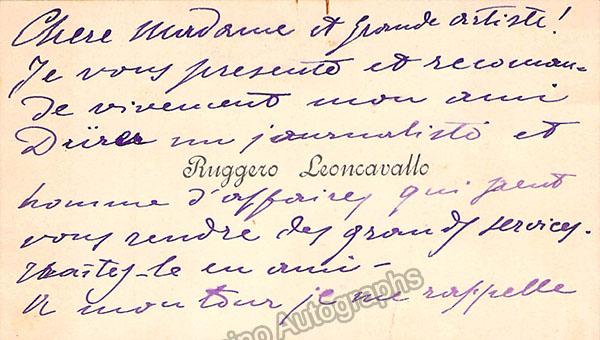 Chere Madame et grande artiste!
Je vous presente et recoman=
de vivement mon ami
un journaliste et
Ruggero Leoncavallo
homme d'affaires qui peut
vous rendre des grands services.
Traitez-le en ami-
A mon tour je me rappelle
ino Autographs